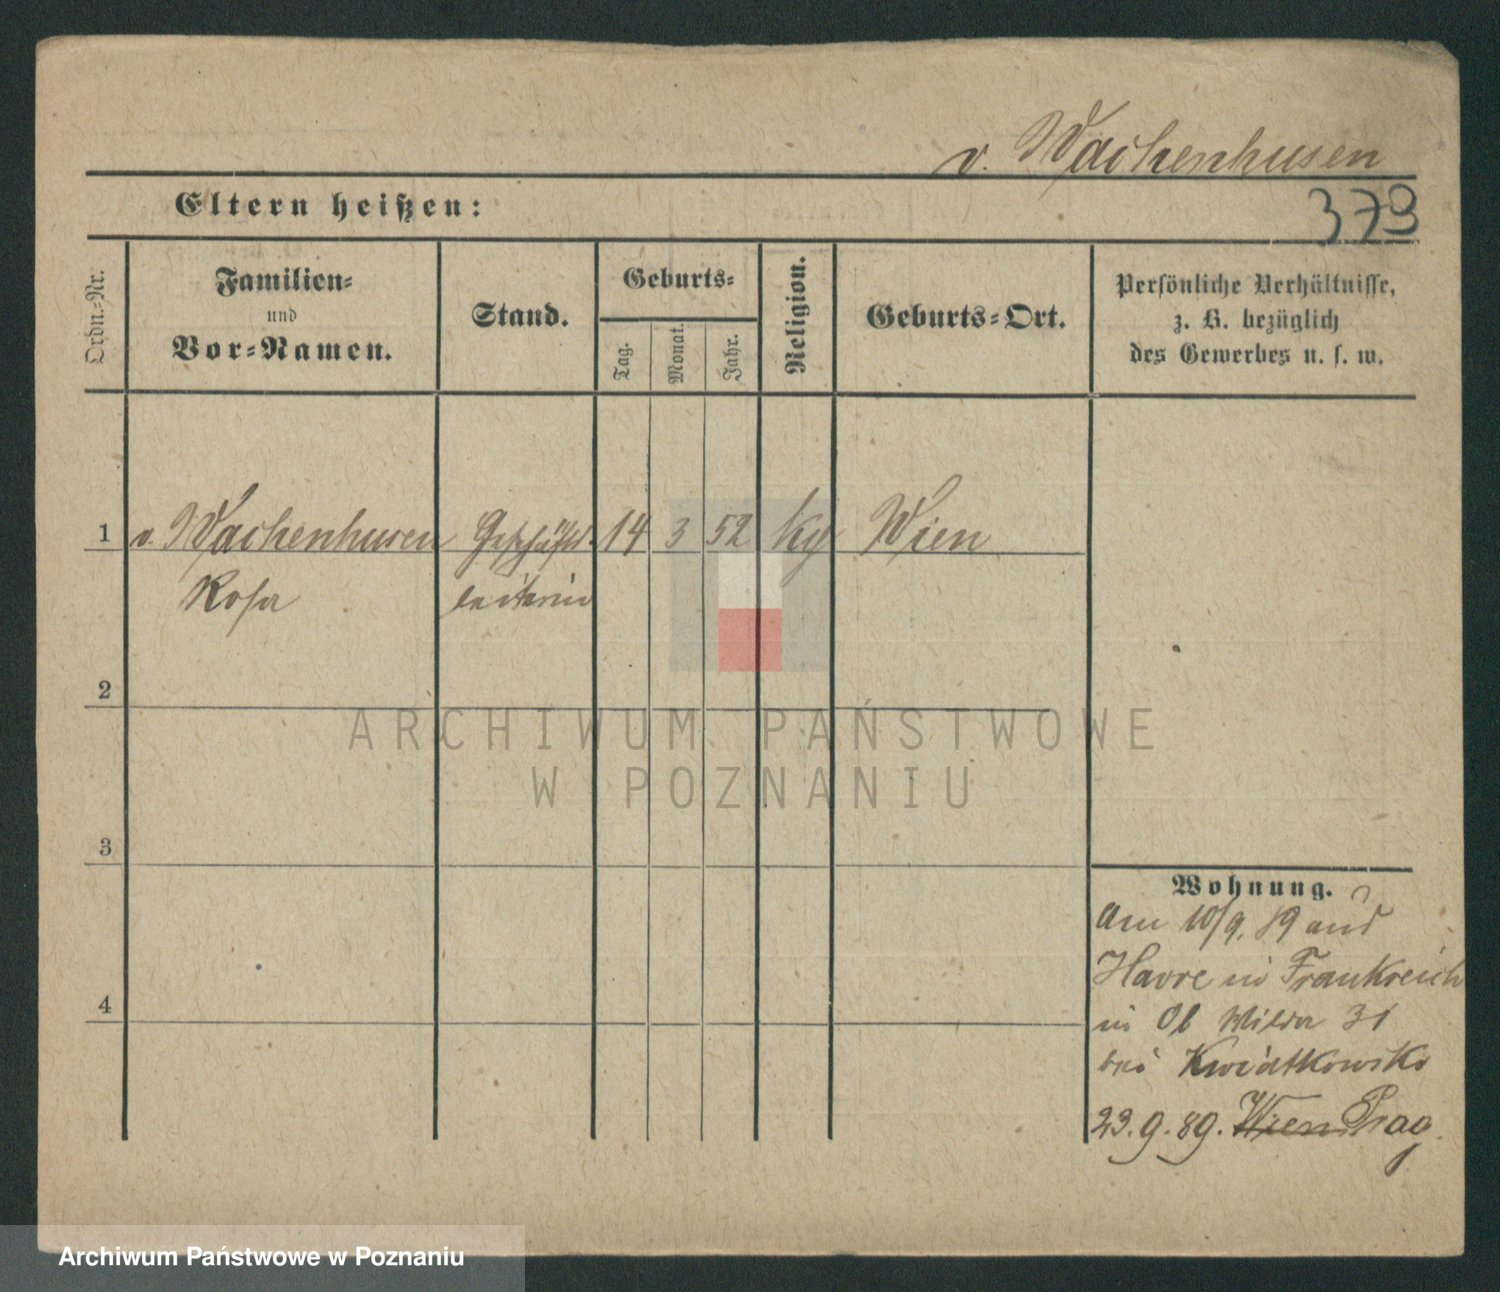 v. Wachenhusen
Eltern heißen:
373
Ordn.-Nr.
Familien-
und
Vor-Namen.
Stand.
Geburts-
Tag.
Monat.
Jahr.
Religion.
Geburts-Ort.
Persönliche Verhältnisse,
z. B. bezüglich
des Gewerbes u. s. w.
1 v. Wachenhusen Geschäfts- 14 3 52 Wien
Rosa leiterin
2
ARCHIWUM PAŃSTWOWE
W POZNANIU
3
Wohnung.
Am 10/9. 89 aus
Havre in Frankreich
4
in Ob Wilda 31
bei Kwiatkowski
23.9.89. Wien Prag
Archiwum Państwowe w Poznaniu